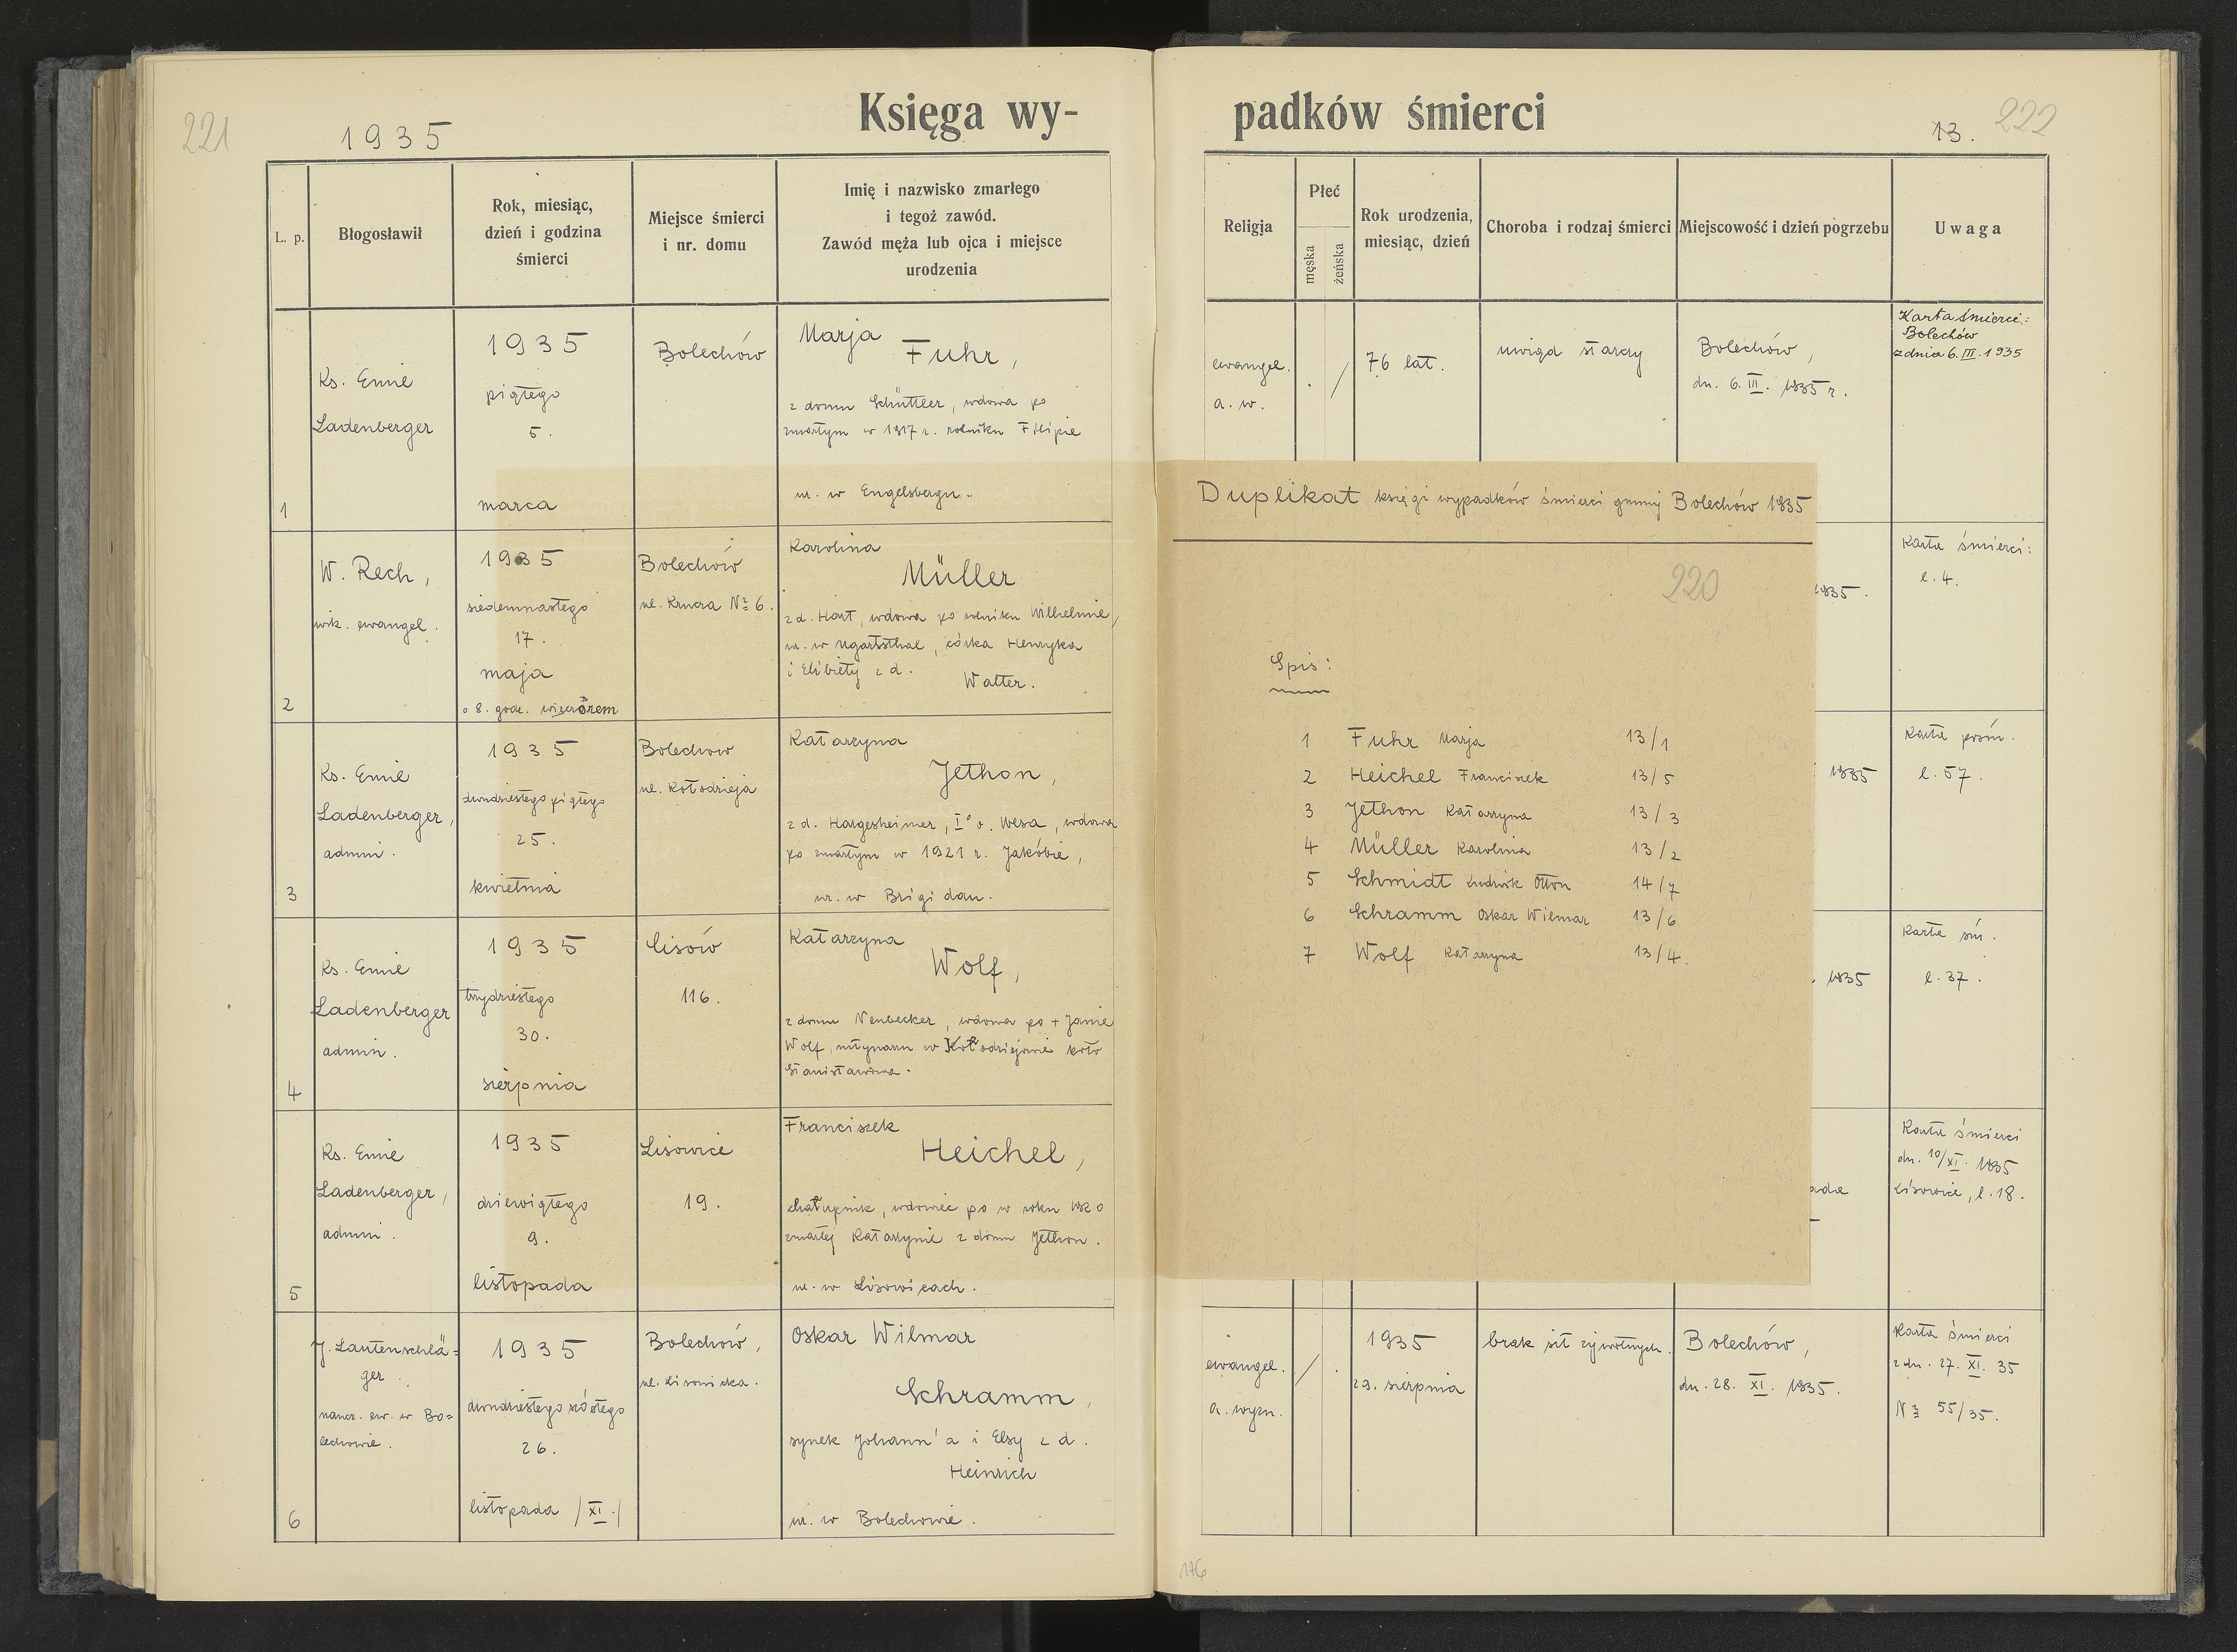 221
1935
Księga wy-
L. p.
Błogosławił
Rok, miesiąc,
dzień i godzina
śmierci
Miejsce śmierci
i nr. domu
Imię i nazwisko zmarłego
i tegoż zawód.
Zawód męża lub ojca i miejsce
urodzenia
1
Ks. Emil
Ladenberger
1935
piątego
5.
marca
Bolechów
Marja
Fuhr,
z domu Schüttler, wdowa po
zmarłym w 1917 r. rolniku Filipie
ur. w Engelsbergu.
2
W. Rech,
wik. ewangel.
1935
siedemnastego
17.
maja
o 8. godz. wieczorem
Bolechów
ul. Krucza Nr 6.
Karolina
Müller
z d. Hart, wdowa po rolniku Wilhelmie,
ur. w Ugartsthal, córka Henryka
i Elżbiety z d.
Walter.
3
Ks. Emil
Ladenberger,
admin.
1935
dwudziestego piątego
25.
kwietnia
Bolechow
ul. Kołodzieja
Katarzyna
Jethon,
z d. Hargesheimer, I° v. Wesa, wdowa
po zmarłym w 1921 r. Jakóbie,
ur. w Brigidau.
4
Ks. Emil
Ladenberger
admin.
1935
trzydziestego
30.
sierpnia
Lisów
116.
Katarzyna
Wolf,
z domu Neubecker, wdowa po + Janie
Wolf, młynarzu w Kołodziejówie koło
Stanisławowa.
5
Ks. Emil
Ladenberger,
admin.
1935
dziewiątego
9.
listopada
Lisowice
19.
Franciszek
Heichel,
chałupnik, wdowiec po w roku
zmarłej Katarzynie z domu Jethon.
ur. w Lisowicach.
6
J. Lautenschlä=
ger
naucz. ew. w Bo=
lechowie.
1935
dwudziestego szóstego
26.
listopada /XI./
Bolechów,
ul. Lisowicka.
Oskar Wilmar
Schramm,
synek Johann'a i Elsy z d.
Heinrich
ur. w Bolechowie.
padków śmierci
13.
222
Religja
Płeć
męska
żeńska
Rok urodzenia,
miesiąc, dzień
Choroba i rodzaj śmierci
Miejscowość i dzień pogrzebu
Uwaga
ewangel.
a. w.
. /
76 lat.
uwiąd starczy
Bolechów,
dn. 6. III. 1935 r.
Karta śmierci:
Bolechów
z dnia 6. III. 1935
Duplikat księgi wypadków śmierci gminy Bolechów 1935
220
Spis:
1 Fuhr Marja 13/1
2 Heichel Franciszek 13/5
3 Jethon Katarzyna 13/3
4 Müller Karolina 13/2
5 Schmidt Ludwik Otton 14/7
6 Schramm Oskar Wilmar 13/6
7 Wolf Katarzyna 13/4.
1935.
Karta śmierci:
l. 4.
1935
Karta pośm.
l. 57.
. 1935
Karta śm.
l. 37.
ada
Karta śmierci
dn. 10/XI. 1935
Lisowice, l. 18.
ewangel.
a. wyzn.
/ .
1935
29. sierpnia
brak sił żywotnych.
Bolechów,
dn. 28. XI. 1935.
Karta śmierci
z dn. 27. XI. 35
Nr 55/35.
176